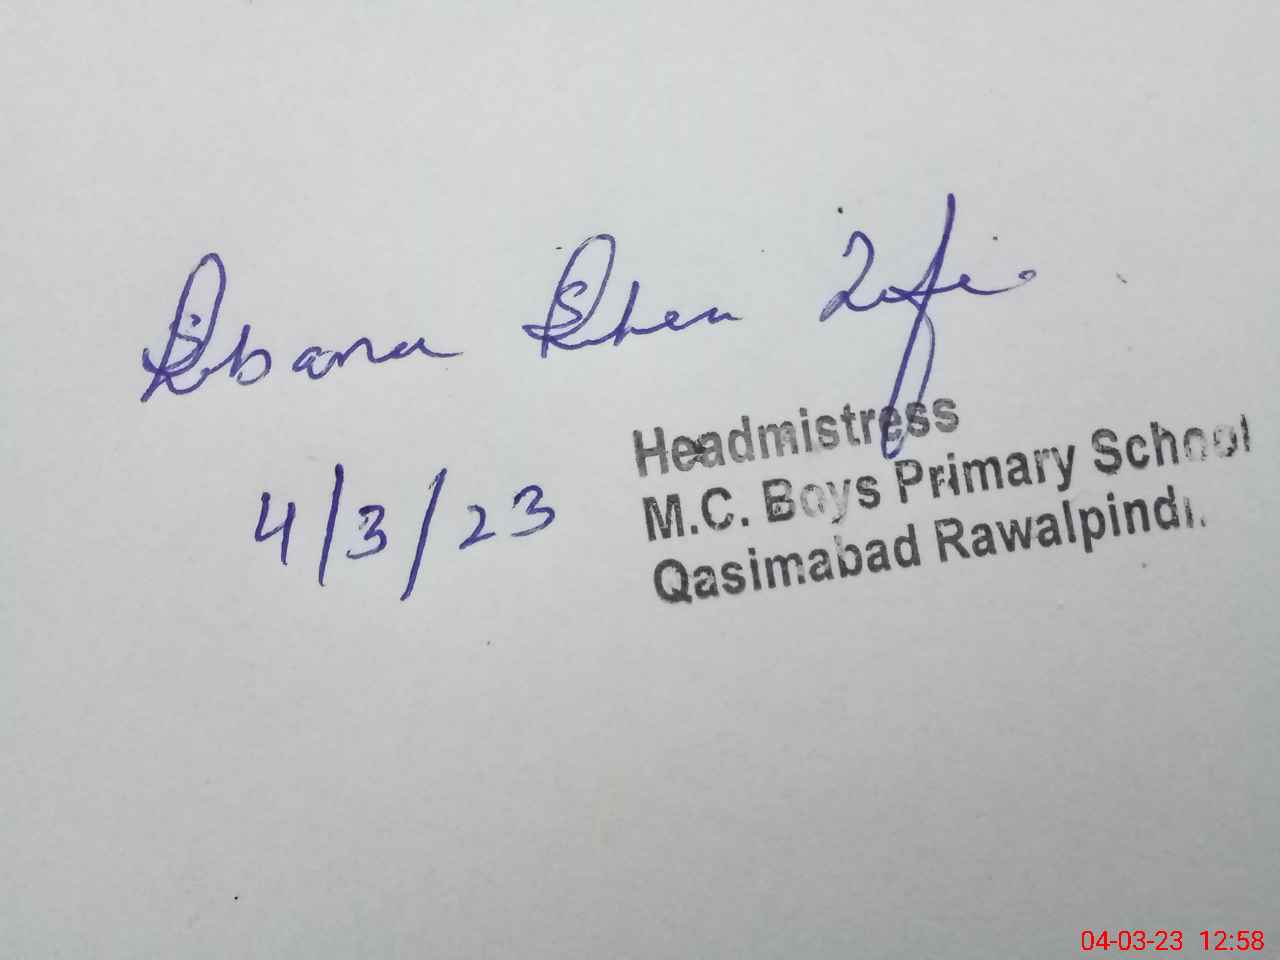 4/3/23
Headmistress
M.C. Boys Primary School
Qasimabad Rawalpindi.
04-03-23 12:58